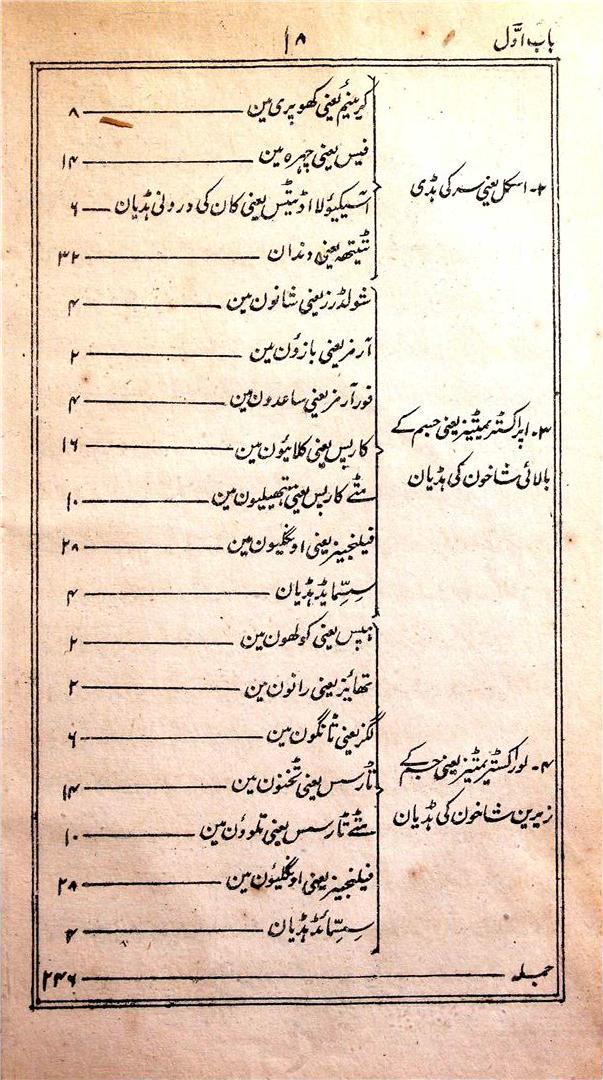 باب اوّل
۱۸
۲۔ اسکل یعنی سر کی ہڈی
کرینیم یعنی کھوپری مین ۸
فیس یعنی چہرہ مین ۱۴
آسیکیولا اڈیٹس یعنی کان کی درونی ہڈیان ۶
ٹیتھ یعنی دندان ۳۲
۳۔ اپر اکسٹریمیٹیز یعنی جسم کے
بالائی شاخون کی ہڈیان
شولڈرز یعنی شانون مین ۴
آرمز یعنی بازؤن مین ۲
فور آرمز یعنی ساعدون مین ۴
کارپس یعنی کلائیون مین ۱۶
مٹے کارپس یعنی ہتھیلیون مین ۱۰
فیلنجیز یعنی اونگلیون مین ۲۸
سسمائڈ ہڈیان ۴
۴۔ لور اکسٹریمیٹیز یعنی جسم کے
زیرین شاخون کی ہڈیان
ہپس یعنی کولھون مین ۲
تھائیز یعنی رانون مین ۲
لگز یعنی ٹانگون مین ۶
ٹارسس یعنی ٹخنون مین ۱۴
مٹے ٹارسس یعنی تلوون مین ۱۰
فیلنجیز یعنی اونگلیون مین ۲۸
سسمائڈ ہڈیان ۴
جملہ ۲۴۶